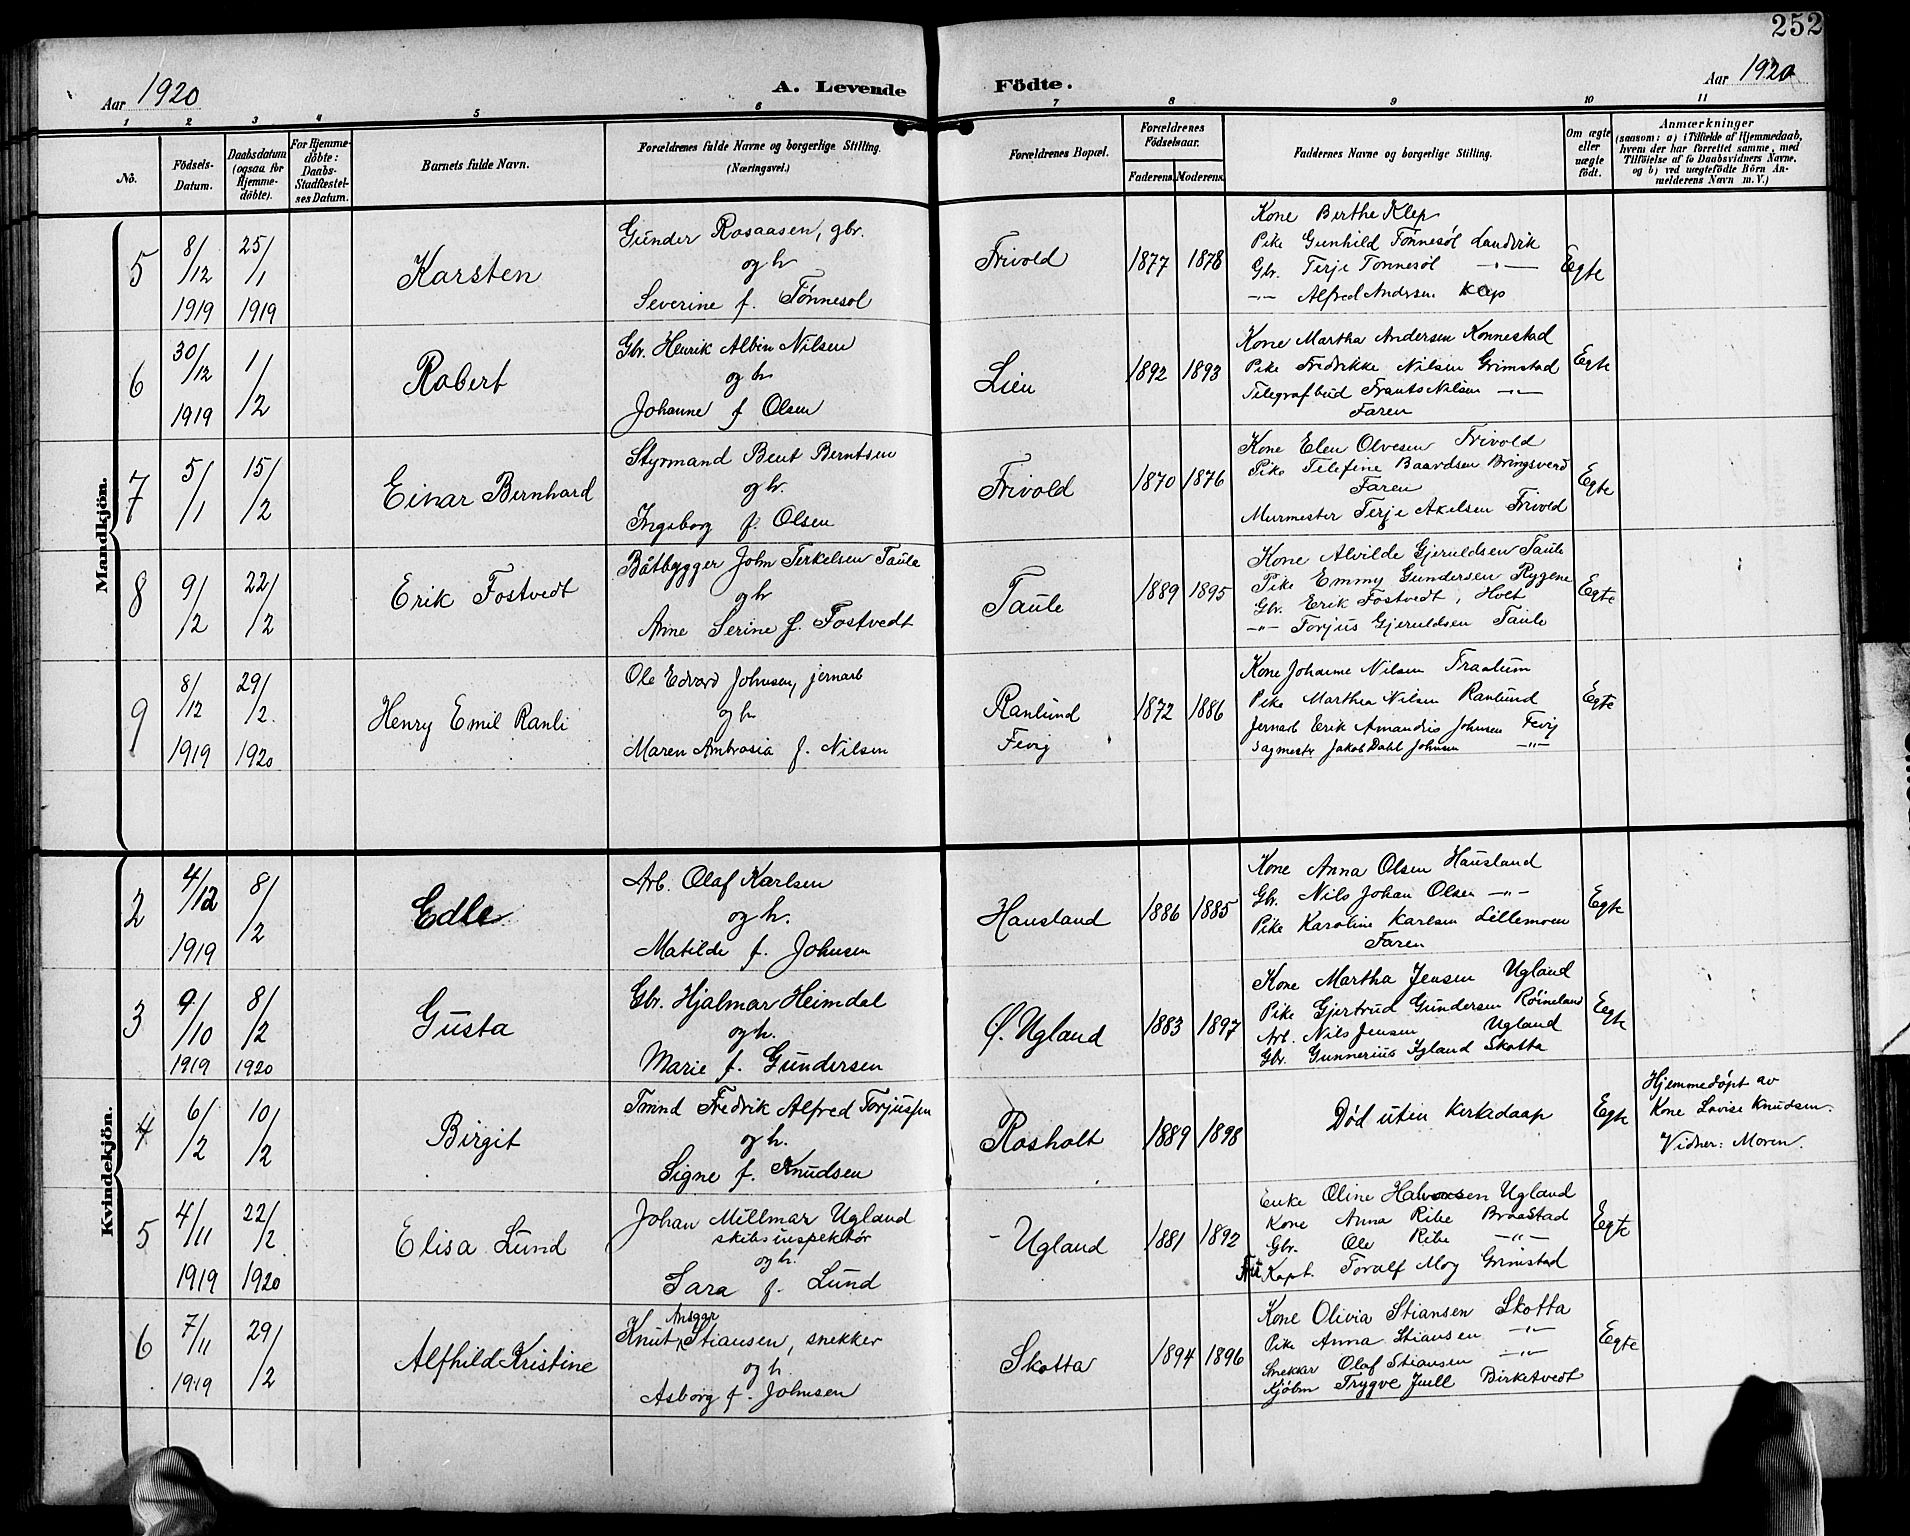 252
Aar 1920
A. Levende
Födte.
Aar 1920
1 2 3 4 5 6 7 8 9 10 11
No.
Födsels-
Datum.
Daabsdatum
(ogsaa for
Hjemme-
döbte).
For Hjemme-
döbte:
Daabs-
Stadfæstel-
ses Datum.
Barnets fulde Navn.
Forældrenes fulde Navne og borgerlige Stilling.
(Næringsvei.)
Forældrenes Bopæl.
Forældrenes
Födselsaar.
Faderens. Moderens.
Faddernes Navne og borgerlige Stilling.
Om ægte
eller
uægte
födt.
Anmærkninger
(saasom: a) i Tilfælde af Hjemmedaab,
hvem der har forrettet samme, med
Tilföielse af to Daabsvidners Navne,
og b) ved uægtefödte Börn An-
melderens Navn m. V.)
Mandkjön.
5
8/12
1919
25/1
1919
Karsten
Gunder Rosaasen, gbr.
og h
Severine f. Tønnesøl
Frivold
1877 1878
Kone Birthe Klep
Pike Gunhild Tønnesøl Landvik
Gbr. Terje Tønnesøl -"-
-"- Alfred Andersen Klep
Egte
6
30/12
1919
1/2
Robert
Gbr. Henrik Albin Nilsen
og h
Johanne f Olsen
Lien
1892 1893
Kone Martha Andersen Konnestad
Pike Fredrikke Nilsen Grimstad
Telegrafbud Frants Nilsen -"-
Faren
Egte
7
5/1
15/2
Einar Bernhard
Styrmand Bent Berntsen
og h.
Ingeborg f. Olsen
Frivold
1870 1876
Kone Elen Olvesen Frivold
Pike Telefine Baardsen Bringsverd
Faren
Murmester Terje Akelsen Frivold
Egte
8
9/2
22/2
Erik Fostvedt
Båtbygger John Terkelsen Taule
og h
Anne Serine f. Fostvedt
Taule
1889 1895
Kone Alvilde Gjeruldsen Taule
Pike Emmy Gundersen Rygene
Gbr. Erik Fostvedt, Holt
-"- Torjus Gjeruldsen Taule
Egte
9
8/12
1919
29/2.
1920
Henry Emil Ranli
Ole Edvard Johnsen, jernarb
og h
Maren Ambrosia f. Nilsen
Ranlund
Fevig
1872 1886
Kone Johanne Nilsen
Pike Marthea Nilsen Ranlund
Jernarb Erik Amandus Johnsen Fevig
Sagmestr Jakob Dahl Johnsen -"-
Egte
Kvindekjön.
2
4/12
1919
8/2
Edle
Arb. Olaf Karlsen
og h.
Matilde f. Johnsen
Hausland
1886 1885
Kone Anna Olsen Hausland
Gbr. Nils Johan Olsen -"-
Pike Karoline Karlsen Lillemoen
Faren
Egte
3
9/10
1919
8/2
1920
Gusta
Gbr. Hjalmar Heimdal
og h.
Marie f. Gundersen
Ø. Ugland
1883 1897
Kone Martha Jensen Ugland
Pike Gjertrud Gundersen Røineland
Arb. Nils Jensen Ugland
Gbr. Gunnerius Igland Skotta
Egte
4
6/2
10/2
Birgit
Tmnd Fredrik Alfred Torjussen
og h.
Signe f. Knudsen
Rosholt
1889 1898
Død uten kirkedaap
Egte
Hjemmedøpt av
Kone Lovise Knudsen.
Vidner: Moren.
5
4/11
1919
22/2
1920
Elisa Lund
Johan Millmar Ugland
skibsinspektør
og h.
Sara f. Lund
Ugland
1881 1892
Enke Oline Halvorsen Ugland
Kone Anna Ribe Braastad
Gbr. Ole Ribe -"-
Kapt. Toralf Moy Grimstad
Egte
6
7/11
1919
29/2
Alfhild Kristine
Ansgar
Knut Stiansen, snekker
og h.
Asborg f. Johnsen
Skotta
1894 1896
Kone Olivia Stiansen Skotta
Pike Anna Stiansen -"-
Snekker Olaf Stiansen -"-
Kjøbm Trygve Juell Birketvedt
Egte